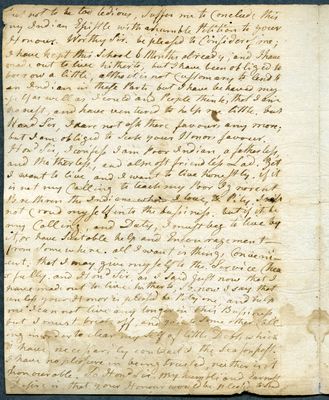 is not to be too tedious, Suffer me to Conclude this
my Indian Epistle with an humble Petition to your
Honour. Worthy Sir, be pleased to Consider me;
I have kept this School 6 Months already, and I have
made out to live hitherto, but I have been obliged to
borrow a little, altho it is not Customary to lend to
an Indian in these Parts, but I have behaved my
self as well as I could and People thinks that I am
Honest, and have ventured to help me a little, but
Hond Sir, I can not ask these favours any more,
but I am obliged to seek your Honors favour
Hond Sir, I confess I am Poor Indian, a fatherless
and Motherless, and almost friendless Lad. Yet
I want to live and I want to live honestly, if it
is not my Calling to teach my Poor Ignorent
Brethren the Indians whom I love, & Pity, I
not Croud my self into the business. but if it be
my Calling, and Duty, I must beg to live by
it, or have Suitable help and Encouragement
from Somewhere. all I want is things Convenie-
ent, that I may give my self to the Service Chea
rfully. and Hond Sir as I said just now that I
have made out to live hitherto, So now I say that
unless your Honor is pleased to Pity me, and help
me I can not live any longer in this Business
but I must break off, and go to Some other Call
ing in order to clear my self of little Debts which
I have necessarily contracted the Season past.
I have no pleasure in being trusted, neither is it
honourable. So Hond Sir, my humble and Earnest
Desire is that your Honour would be pleased to